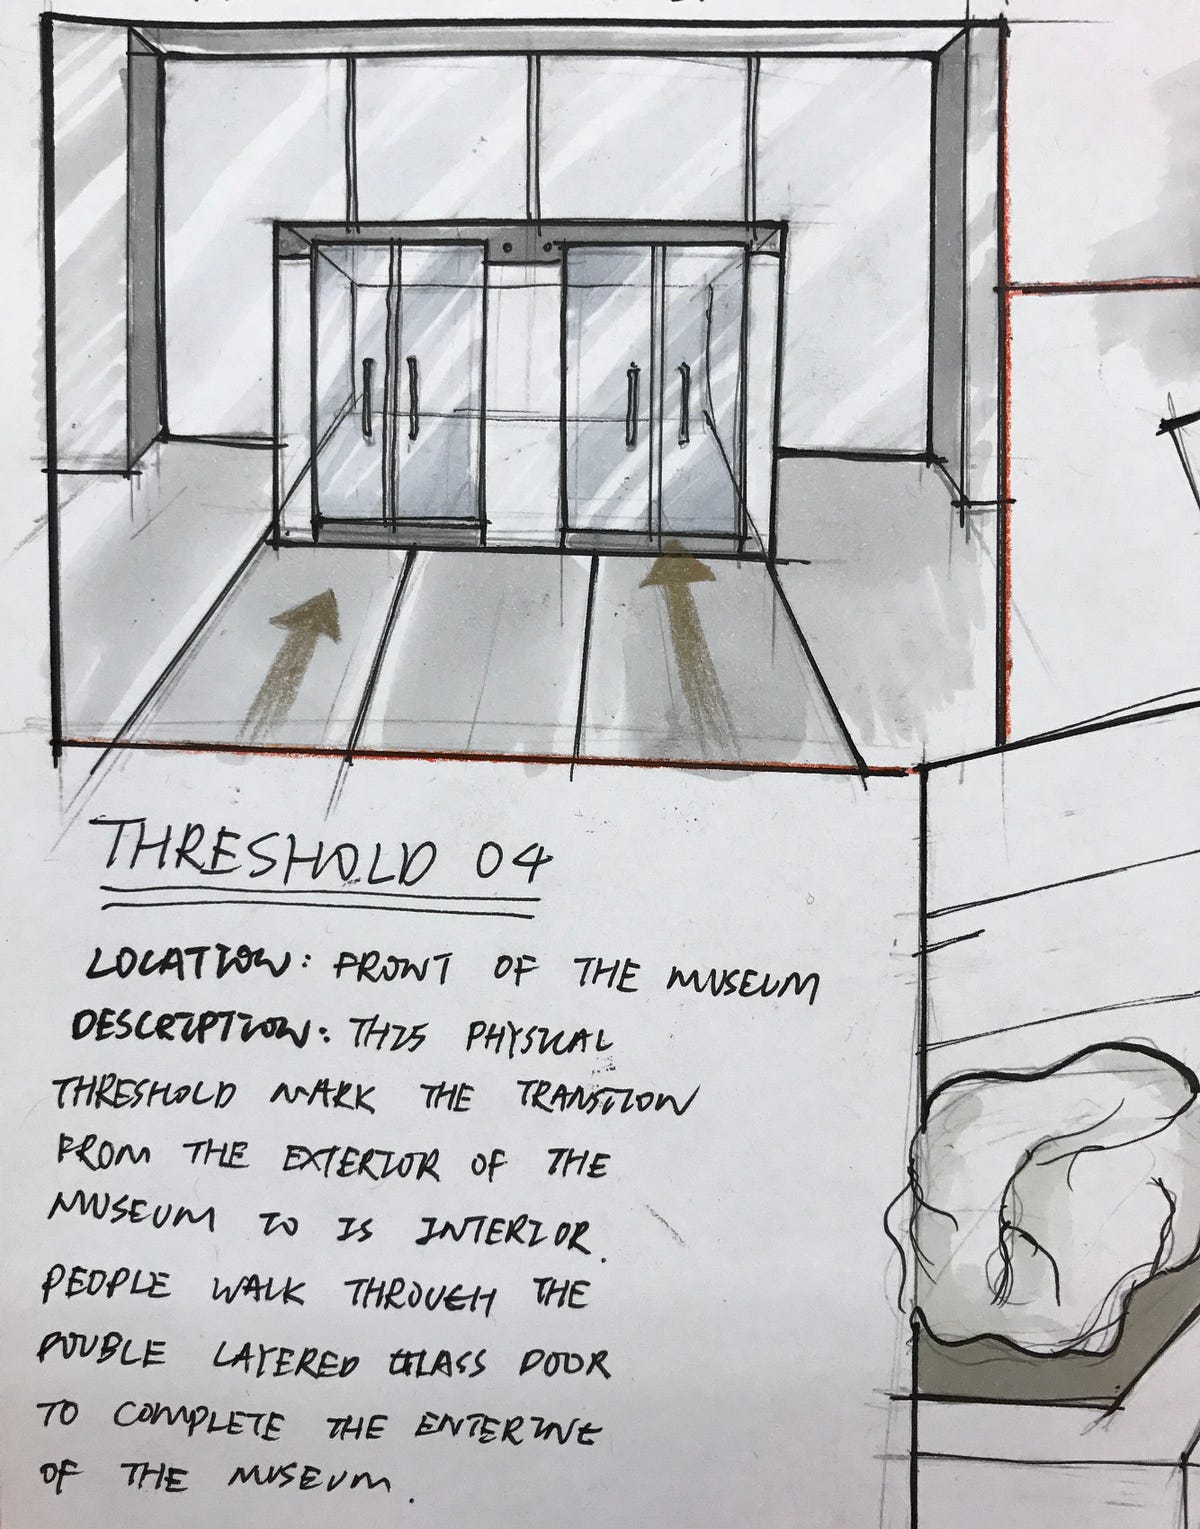 THRESHOLD 04
LOCATION: FRONT OF THE MUSEUM
DESCRIPTION: THIS PHYSICAL
THRESHOLD MARK THE TRANSITION
FROM THE EXTERIOR OF THE
MUSEUM TO IS INTERIOR.
PEOPLE WALK THROUGH THE
DOUBLE LAYERED GLASS DOOR
TO COMPLETE THE ENTERING
OF THE MUSEUM.